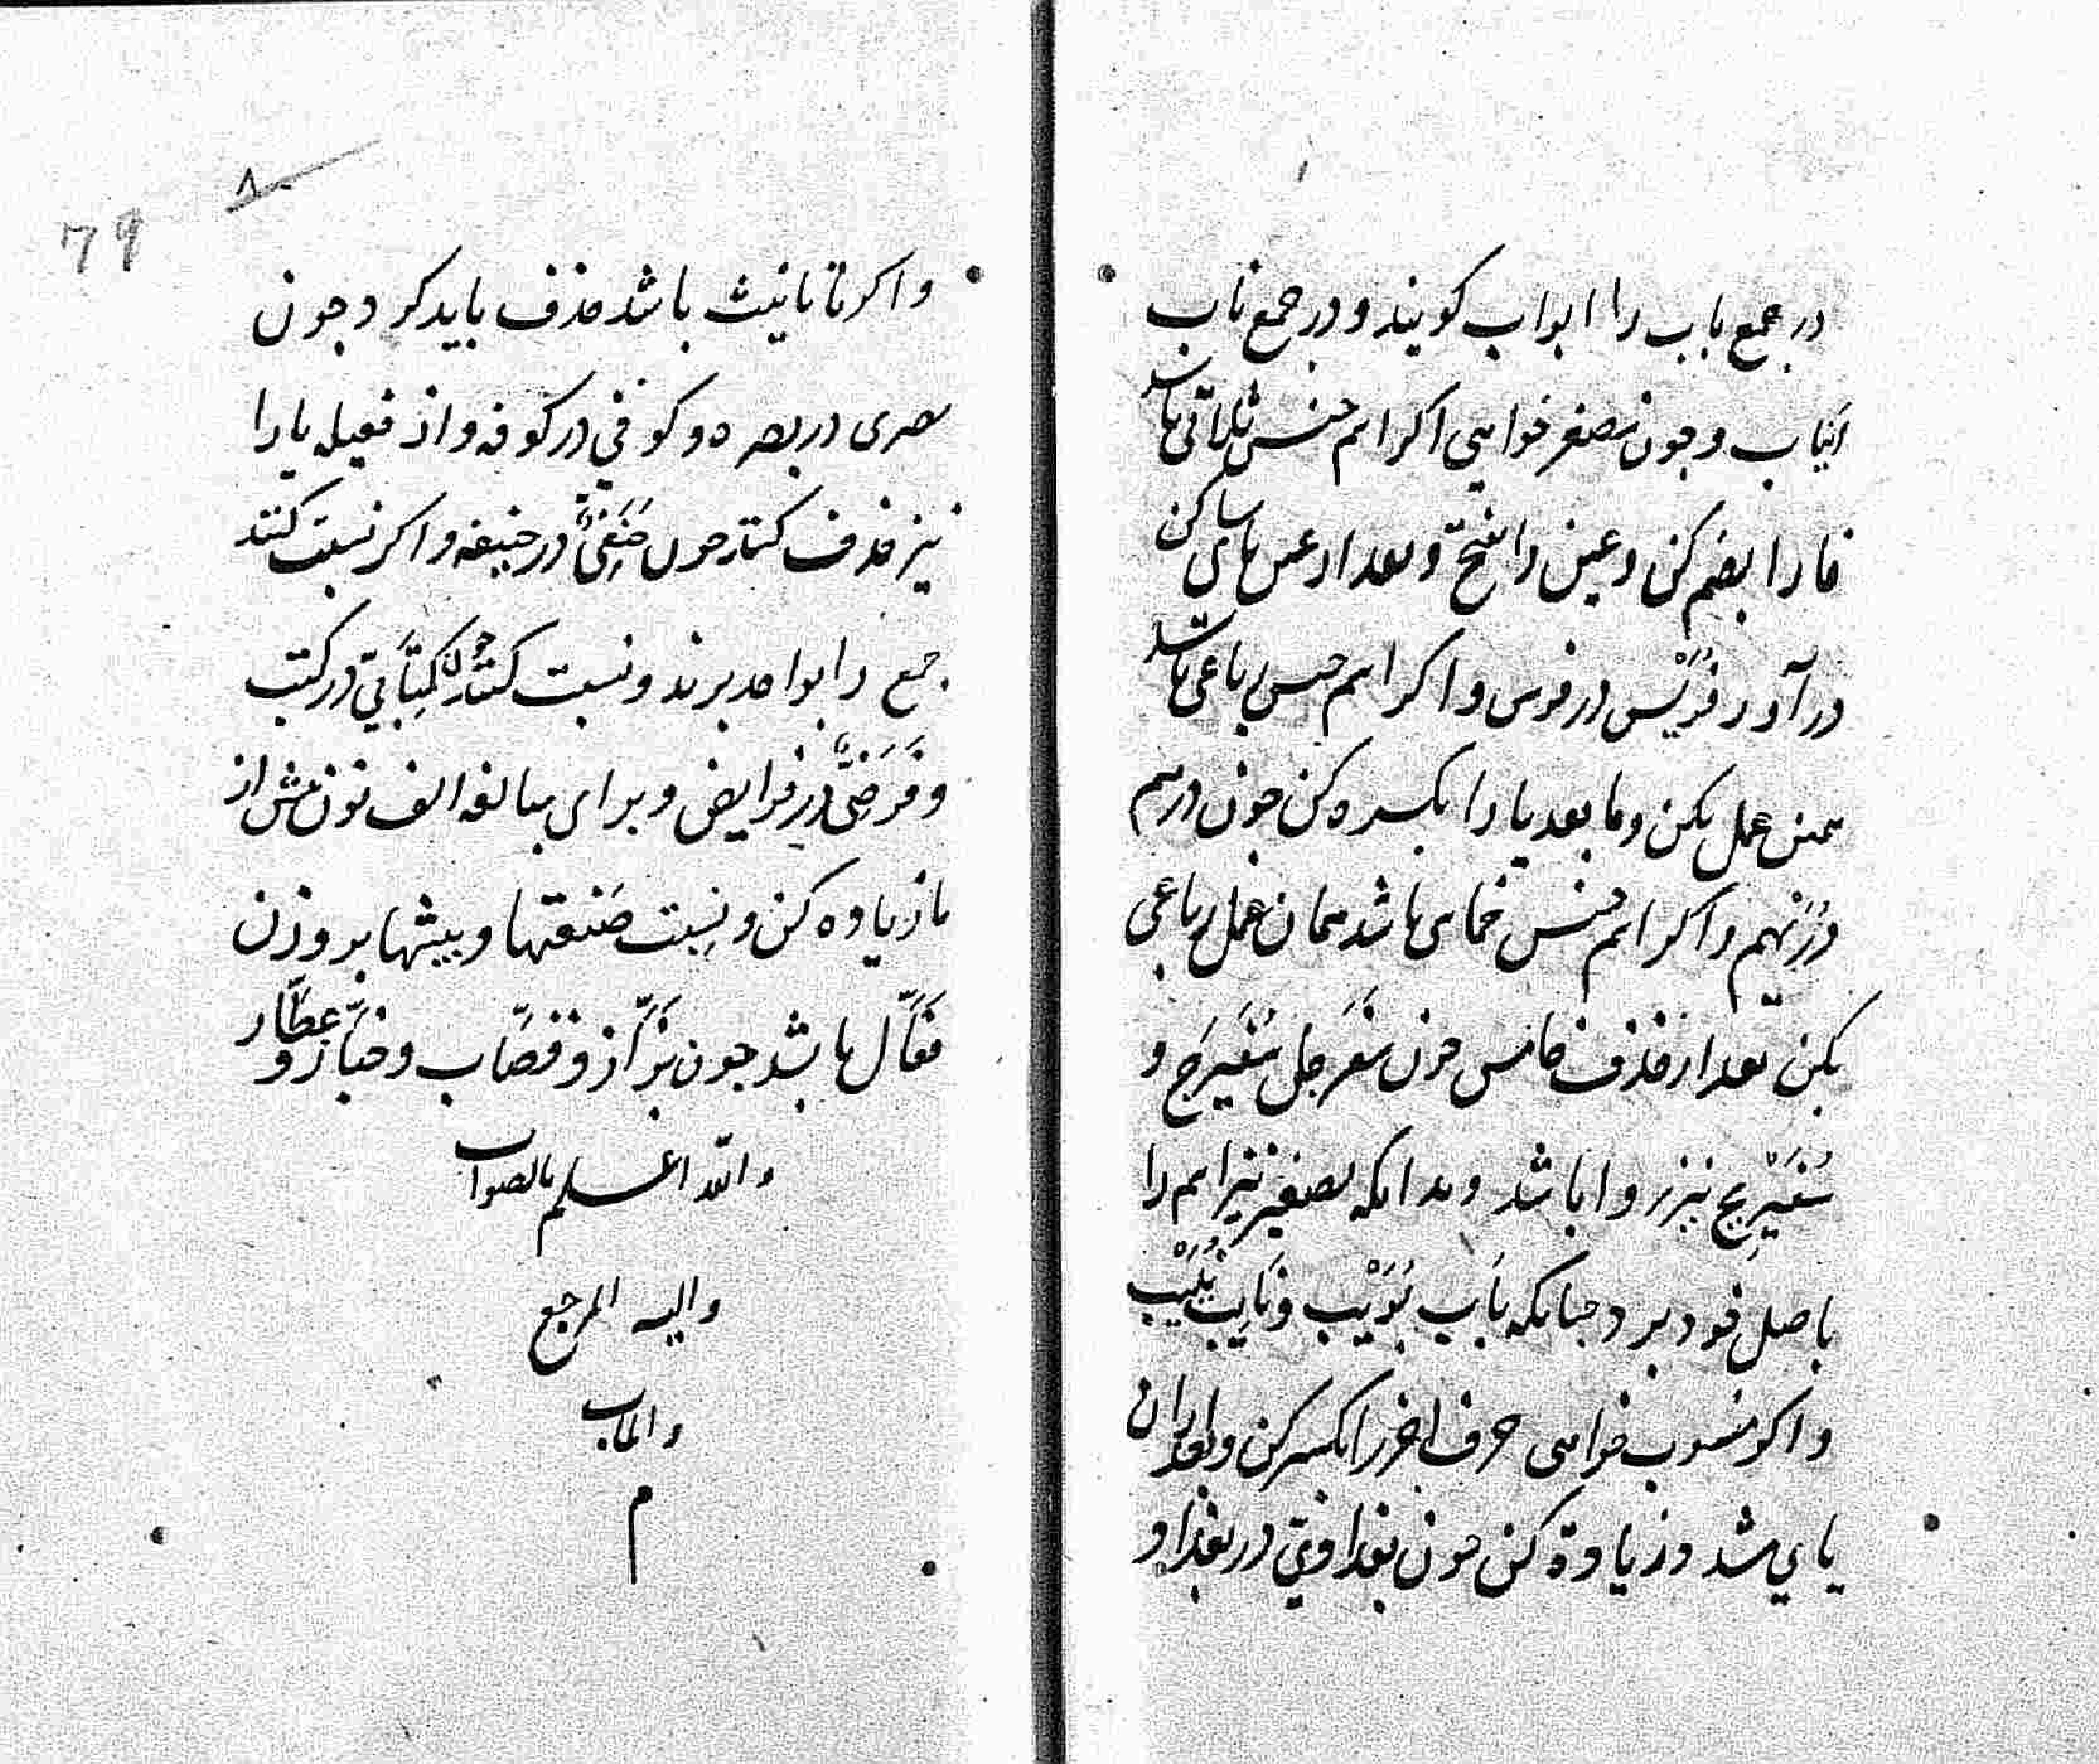 در جمع باب را ابواب كويند و در جمع ناب
انياب و جون مصغر خواهى اكر اسم جنس ثلاثى باشد
فا را بضم كن و عين را بفتح و بعد از عين ياى ساكن
در آور فُرَيْس در فرس و اكر اسم جنس رباعى باشد
همين عمل بكن و ما بعد يا را بكسره كن جون درهم
دُرَيْهم و اكر اسم جنس خماسى باشد همان عمل رباعى
بكن بعد از حذف خامس جون سَفَرجل سُفَيرِج و
سُفَيْرِيج نيز روا باشد و بدانكه تصغير نيز اسم را
باصل خود برد جنانكه بَاب بُوَيْب و نَاب نُيَيْب
و اكر منسوب خواهى حرف اخر را بكسر كن و بعد ازان
ياي مشدد زيادة كن جون بغدادي در بغداد
٨٠
79
و اكر تا تانيث باشد حذف بايد كرد جون
بصرى در بصره و كوفي در كوفه و از فعيله يا را
نيز حذف كنند جون حَنَفِيٌّ در حنيفه و اكر نسبت كنند
جمع را بواحد برند و نسبت كنند جون كِتَابيّ در كتب
و فَرَضِيٌّ در فرايض و براى مبالغه الف نون پيش از
يا زياده كن و نسبت صنعتها و پيشها بر وزن
فَعَّال باشد جون بَزَّاز و قصّاب و خبّاز و عطّار
و الله اعلم بالصواب
و اليه المرجع
و الماب
م